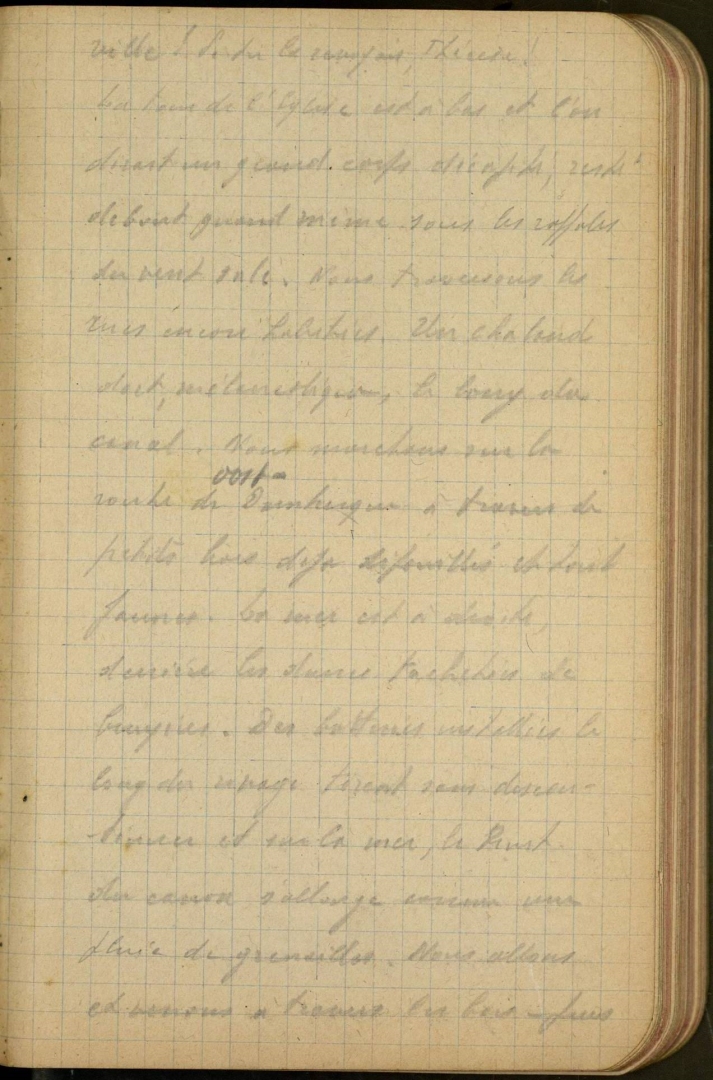 ville ! Si tu la voyais, Thérèse !
La tour de l'Eglise est à bas et l'on
dirait un grand corps décapité, resté
debout quand même sous les raffales
du vent salé. Nous traversons les
rues encore habitées. Un chaland
dort, mélancolique, le long du
canal. Nous marchons sur la
oost-
route de Dunkerque à travers de
petits bois déjà défeuillés et tout
jaunes. La mer est à droite,
derrière les dunes tachetées de
bruyères. Des batteries installées le
long du rivage tirent sans discon-
tinuer et sur la mer, le bruit
du canon s'allonge comme une
pluie de grenailles. Nous allons
et venons à travers les bois - puis